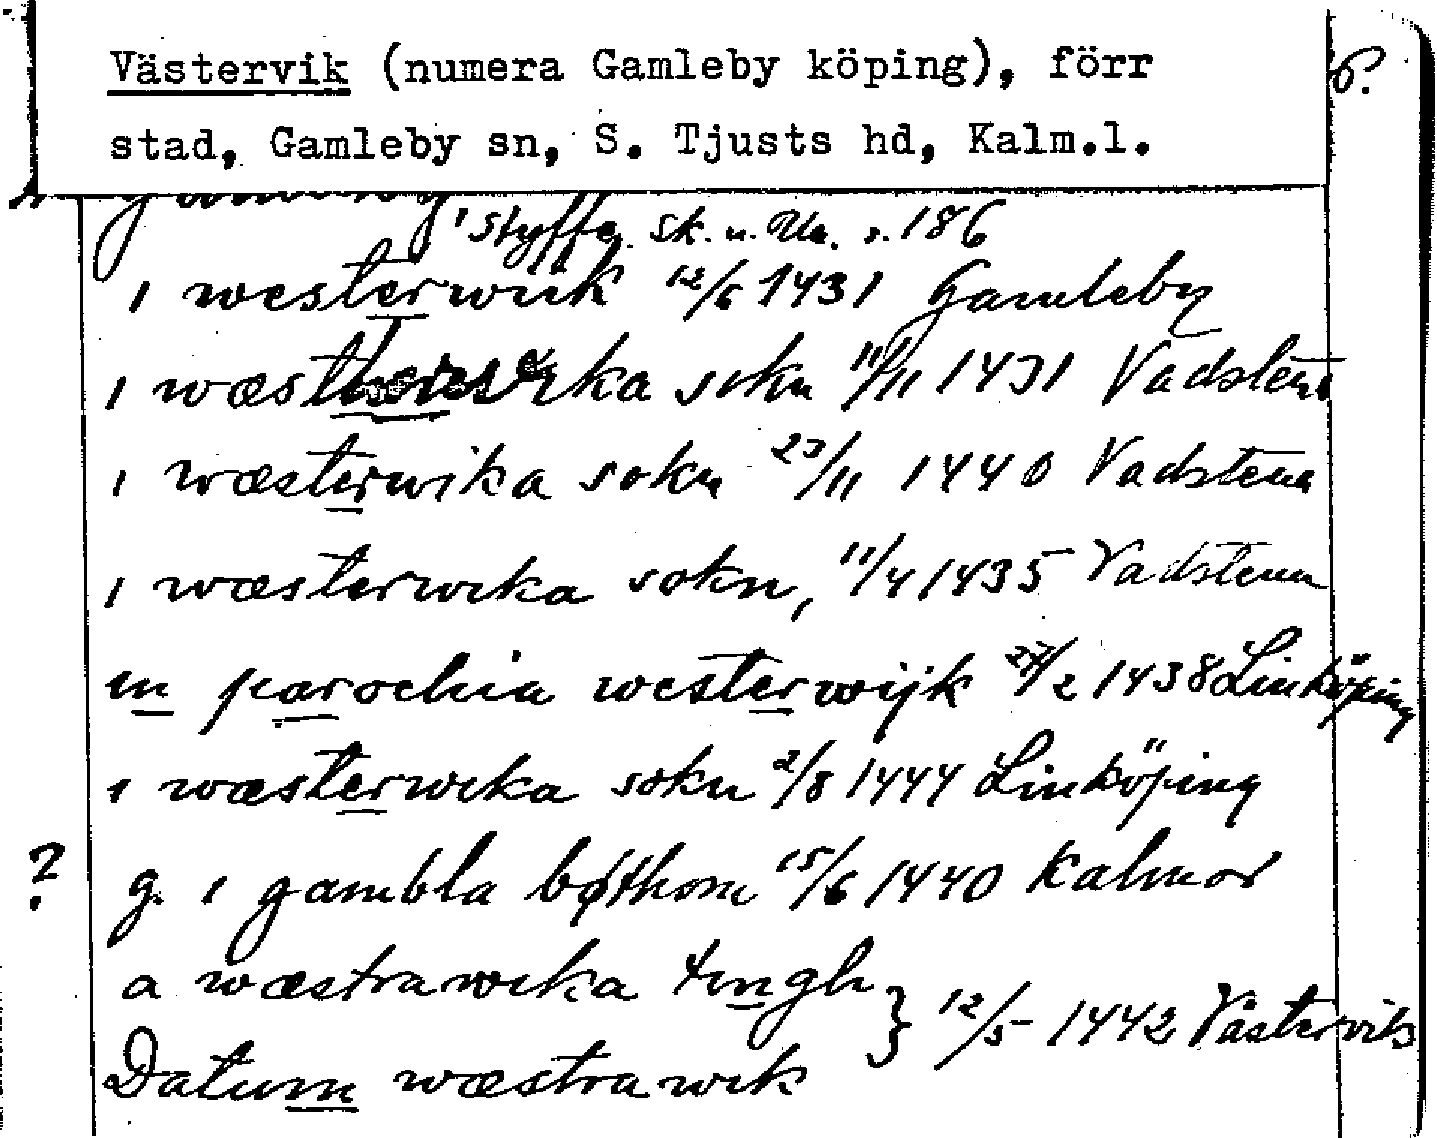 Västervik (numera Gamleby köping), förr
6.
stad, Gamleby sn, S. Tjusts hd, Kalm.l.
Styffe, Sk. u. Un. s. 186
i westerwiik 12/6 1431 Gamleby
i wæstherwika sokn 11/11 1431 Vadstena
i wæsterwika sokn 23/11 1440 Vadstena
i wæsterwika sokn, 11/4 1435 Vadstena
in parochia westerwijk 2/2 1438 Linköping
i wæsterwika sokn 2/8 1444 Linköping
? g. i gambla bøthom 15/6 1440 Kalmar
a wæstrawika tingh
} 12/5 1442 Västervik
Datum wæstrawik